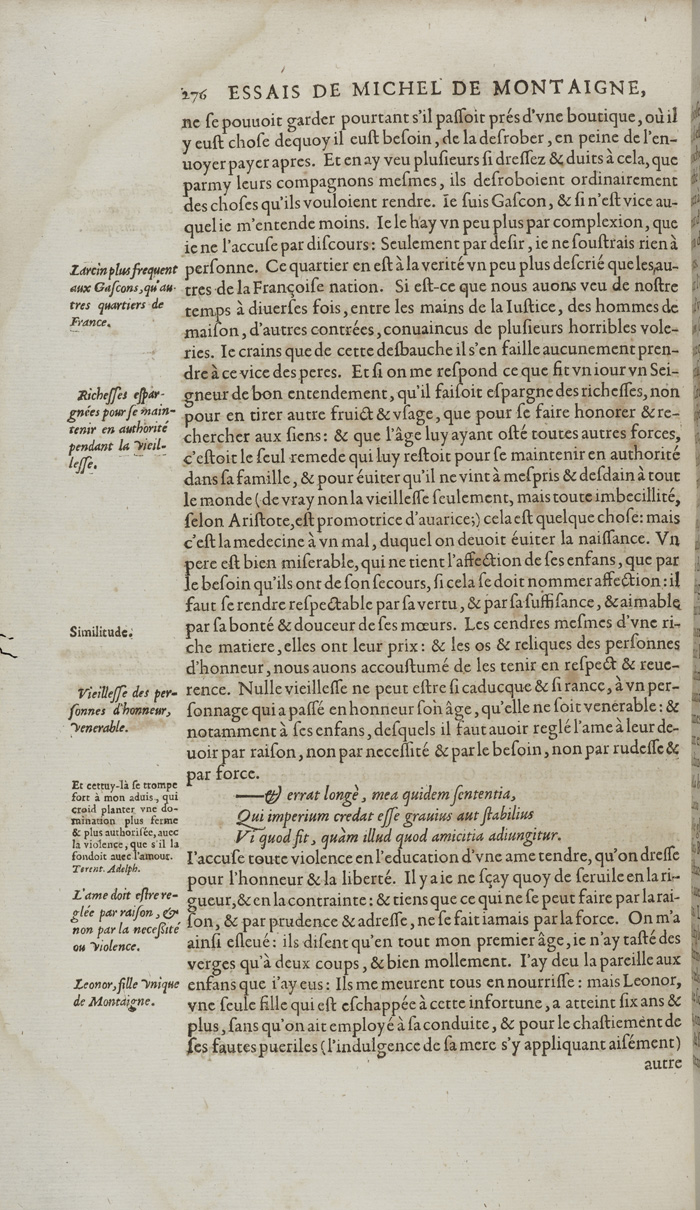 276 ESSAIS DE MICHEL DE MONTAIGNE,
ne ſe pouuoit garder pourtant s'il paſſoit prés d'vne boutique, où il
y euſt choſe dequoy il euſt beſoin, de la deſrober, en peine de l'en-
uoyer payer apres. Et en ay veu pluſieurs ſi dreſſez & duits à cela, que
parmy leurs compagnons meſmes, ils deſroboient ordinairement
des choſes qu'ils vouloient rendre. Ie ſuis Gaſcon, & ſi n'eſt vice au-
quel ie m'entende moins. Ie le hay vn peu plus par complexion, que
ie ne l'accuſe par diſcours: Seulement par deſir, ie ne ſouſtrais rien à
Larcin plus frequent
aux Gaſcons, qu'au-
tres quartiers de
France.
perſonne. Ce quartier en eſt à la verité vn peu plus deſcrié que les au-
tres de la Françoiſe nation. Si eſt-ce que nous auons veu de noſtre
temps à diuerſes fois, entre les mains de la Iuſtice, des hommes de
maiſon, d'autres contrées, conuaincus de pluſieurs horribles vole-
ries. Ie crains que de cette deſbauche il s'en faille aucunement pren-
dre à ce vice des peres. Et ſi on me reſpond ce que fit vn iour vn Sei-
Richeſſes eſpar-
gnées pour ſe main-
tenir en authorité
pendant la vieil-
leſſe.
gneur de bon entendement, qu'il faiſoit eſpargne des richeſſes, non
pour en tirer autre fruict & vſage, que pour ſe faire honorer & re-
chercher aux ſiens: & que l'âge luy ayant oſté toutes autres forces,
c'eſtoit le ſeul remede qui luy reſtoit pour ſe maintenir en authorité
dans ſa famille, & pour éuiter qu'il ne vint à meſpris & deſdain à tout
le monde (de vray non la vieilleſſe ſeulement, mais toute imbecillité,
ſelon Ariſtote, eſt promotrice d'auarice;) cela eſt quelque choſe: mais
c'eſt la medecine à vn mal, duquel on deuoit éuiter la naiſſance. Vn
pere eſt bien miſerable, qui ne tient l'affection de ſes enfans, que par
le beſoin qu'ils ont de ſon ſecours, ſi cela ſe doit nommer affection: il
faut ſe rendre reſpectable par ſa vertu, & par ſa ſuffiſance, & aimable
Similitude.
par ſa bonté & douceur de ſes mœurs. Les cendres meſmes d'vne ri-
che matiere, elles ont leur prix: & les os & reliques des perſonnes
d'honneur, nous auons accouſtumé de les tenir en reſpect & reue-
Vieilleſſe des per-
ſonnes d'honneur,
venerable.
rence. Nulle vieilleſſe ne peut eſtre ſi caducque & ſi rance, à vn per-
ſonnage qui a paſſé en honneur ſon âge, qu'elle ne ſoit venerable: &
notamment à ſes enfans, deſquels il faut auoir reglé l'ame à leur de-
uoir par raiſon, non par neceſſité & par le beſoin, non par rudeſſe &
par force.
Et cettuy-là ſe trompe
fort à mon aduis, qui
croid planter vne do-
mination plus ferme
& plus authoriſée, auec
la violence, que s'il la
fondoit auec l'amour.
Terent. Adelph.
——& errat longè, mea quidem ſententia,
Qui imperium credat eſſe grauius aut ſtabilius
Vi quod fit, quàm illud quod amicitia adiungitur.
I'accuſe toute violence en l'education d'vne ame tendre, qu'on dreſſe
pour l'honneur & la liberté. Il y a ie ne ſçay quoy de ſeruile en la ri-
L'ame doit eſtre re-
glée par raiſon, &
non par la neceſſité
ou violence.
gueur, & en la contrainte: & tiens que ce qui ne ſe peut faire par la rai-
ſon, & par prudence & adreſſe, ne ſe fait iamais par la force. On m'a
ainſi eſleué: ils diſent qu'en tout mon premier âge, ie n'ay taſté des
verges qu'à deux coups, & bien mollement. I'ay deu la pareille aux
Leonor, fille vnique
de Montaigne.
enfans que i'ay eus: Ils me meurent tous en nourriſſe: mais Leonor,
vne ſeule fille qui eſt eſchappée à cette infortune, a atteint ſix ans &
plus, ſans qu'on ait employé à ſa conduite, & pour le chaſtiement de
ſes fautes pueriles (l'indulgence de ſa mere s'y appliquant aiſément)
autre